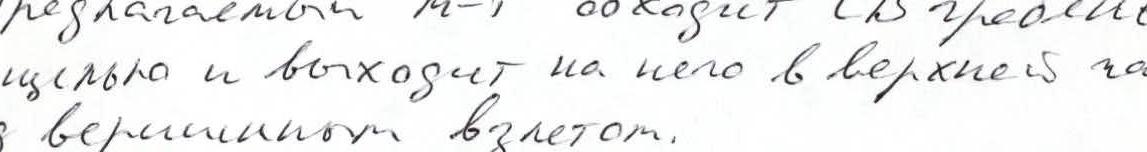 редлагаемый м-т обходит СВ гребень
щелью и выходит на него в верхней ча
з вершинным взлетом.